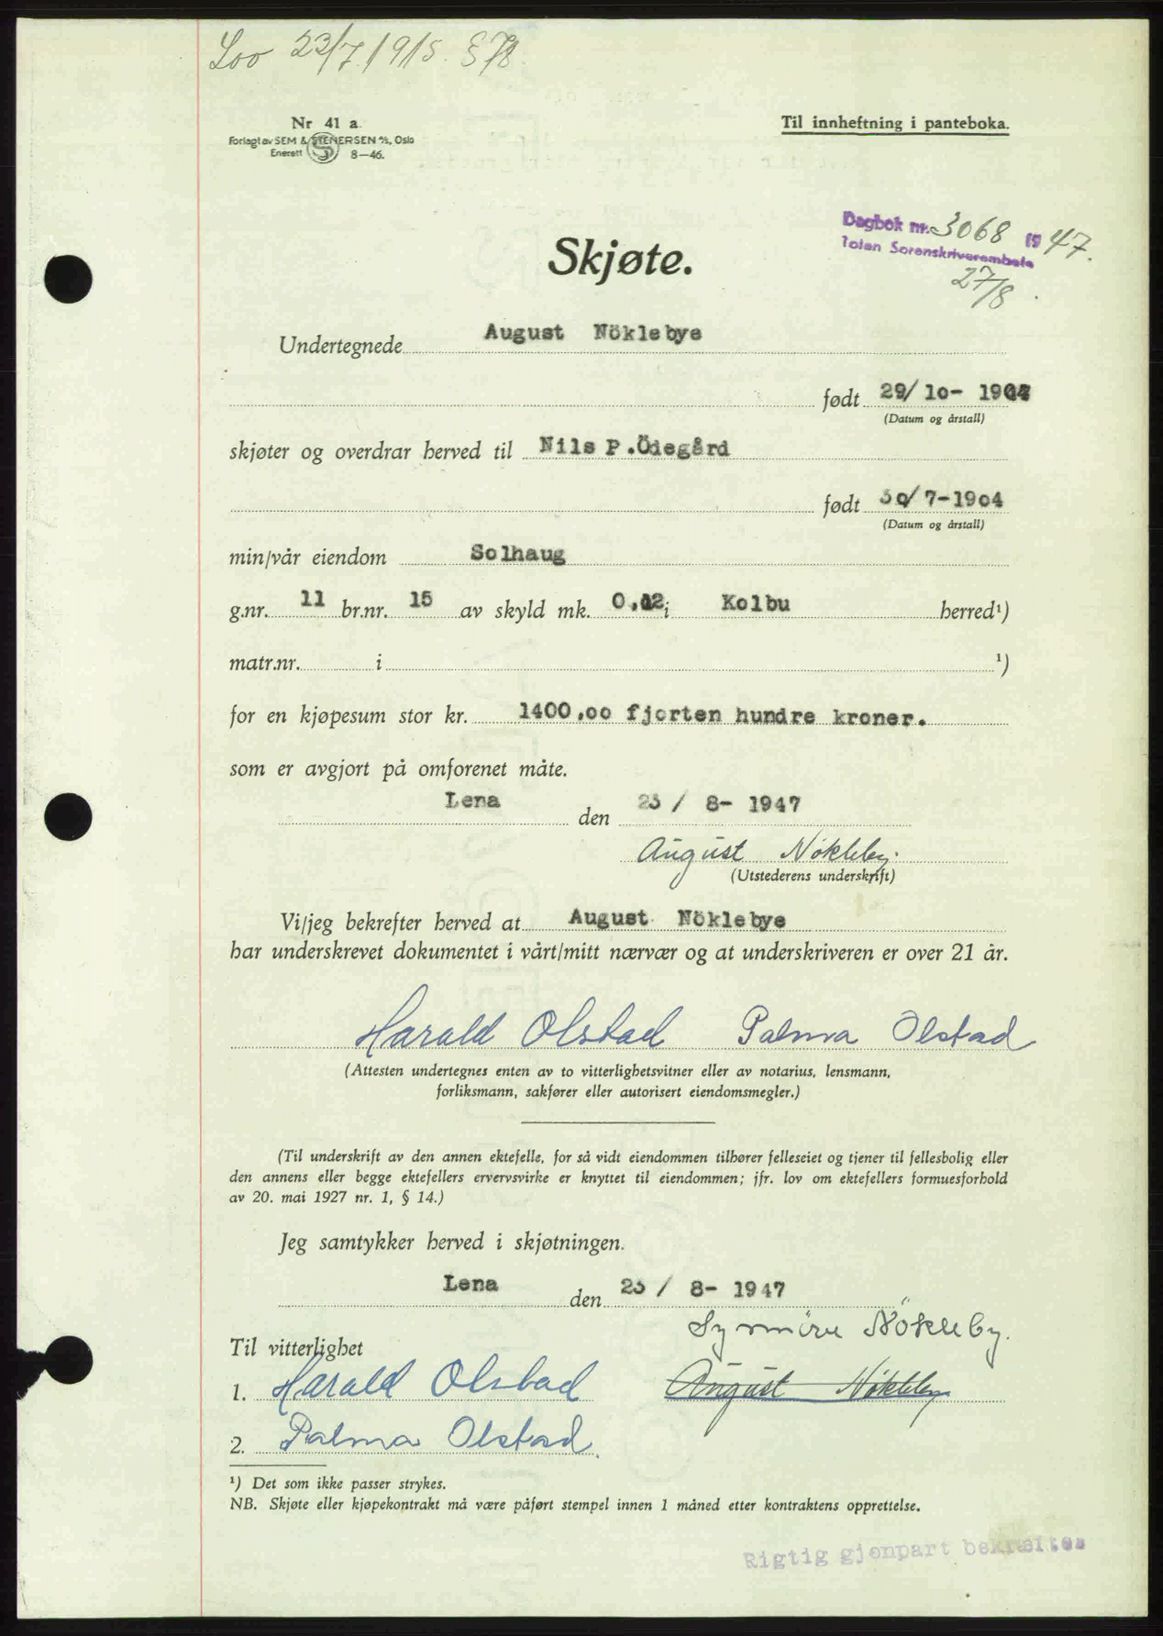 Lov 23/7.1915. § 78.
Nr 41 a.
Til innheftning i panteboka.
Forlagt av SEM & STENERSEN A/S, Oslo
Enerett 8—46.
Dagbok nr. 3068 19 47.
Toten Sorenskriverembete
27/8.
Skjøte.
Undertegnede August Nöklebye
født 29/ 10-
(Datum og årstall)
skjøter og overdrar herved til Nils P. Ödegård
født 30/ 7-1904
(Datum og årstall)
min/vår eiendom Solhaug
g.nr. 11 br.nr. 15 av skyld mk. i Kolbu herred¹)
matr.nr. i ¹)
for en kjøpesum stor kr. 1400,oo fjorten hundre kroner.
som er avgjort på omforenet måte.
Lena den 23 / 8- 1947
August Nökleby.
(Utstederens underskrift)
Vi/jeg bekrefter herved at August Nöklebye
har underskrevet dokumentet i vårt/mitt nærvær og at underskriveren er over 21 år.
Harald Olstad Palma Olstad
(Attesten undertegnes enten av to vitterlighetsvitner eller av notarius, lensmann,
forliksmann, sakfører eller autorisert eiendomsmegler.)
(Til underskrift av den annen ektefelle, for så vidt eiendommen tilhører felleseiet og tjener til fellesbolig eller
den annens eller begge ektefellers ervervsvirke er knyttet til eiendommen; jfr. lov om ektefellers formuesforhold
av 20. mai 1927 nr. 1, § 14.)
Jeg samtykker herved i skjøtningen.
Lena den 23 / 8- 1947
Synnöve Nökleby.
Til vitterlighet
1. Harald Olstad August Nökleby
2. Palma Olstad.
¹) Det som ikke passer strykes.
NB. Skjøte eller kjøpekontrakt må være påført stempel innen 1 måned etter kontraktens opprettelse.
Rigtig gjenpart bekræftes